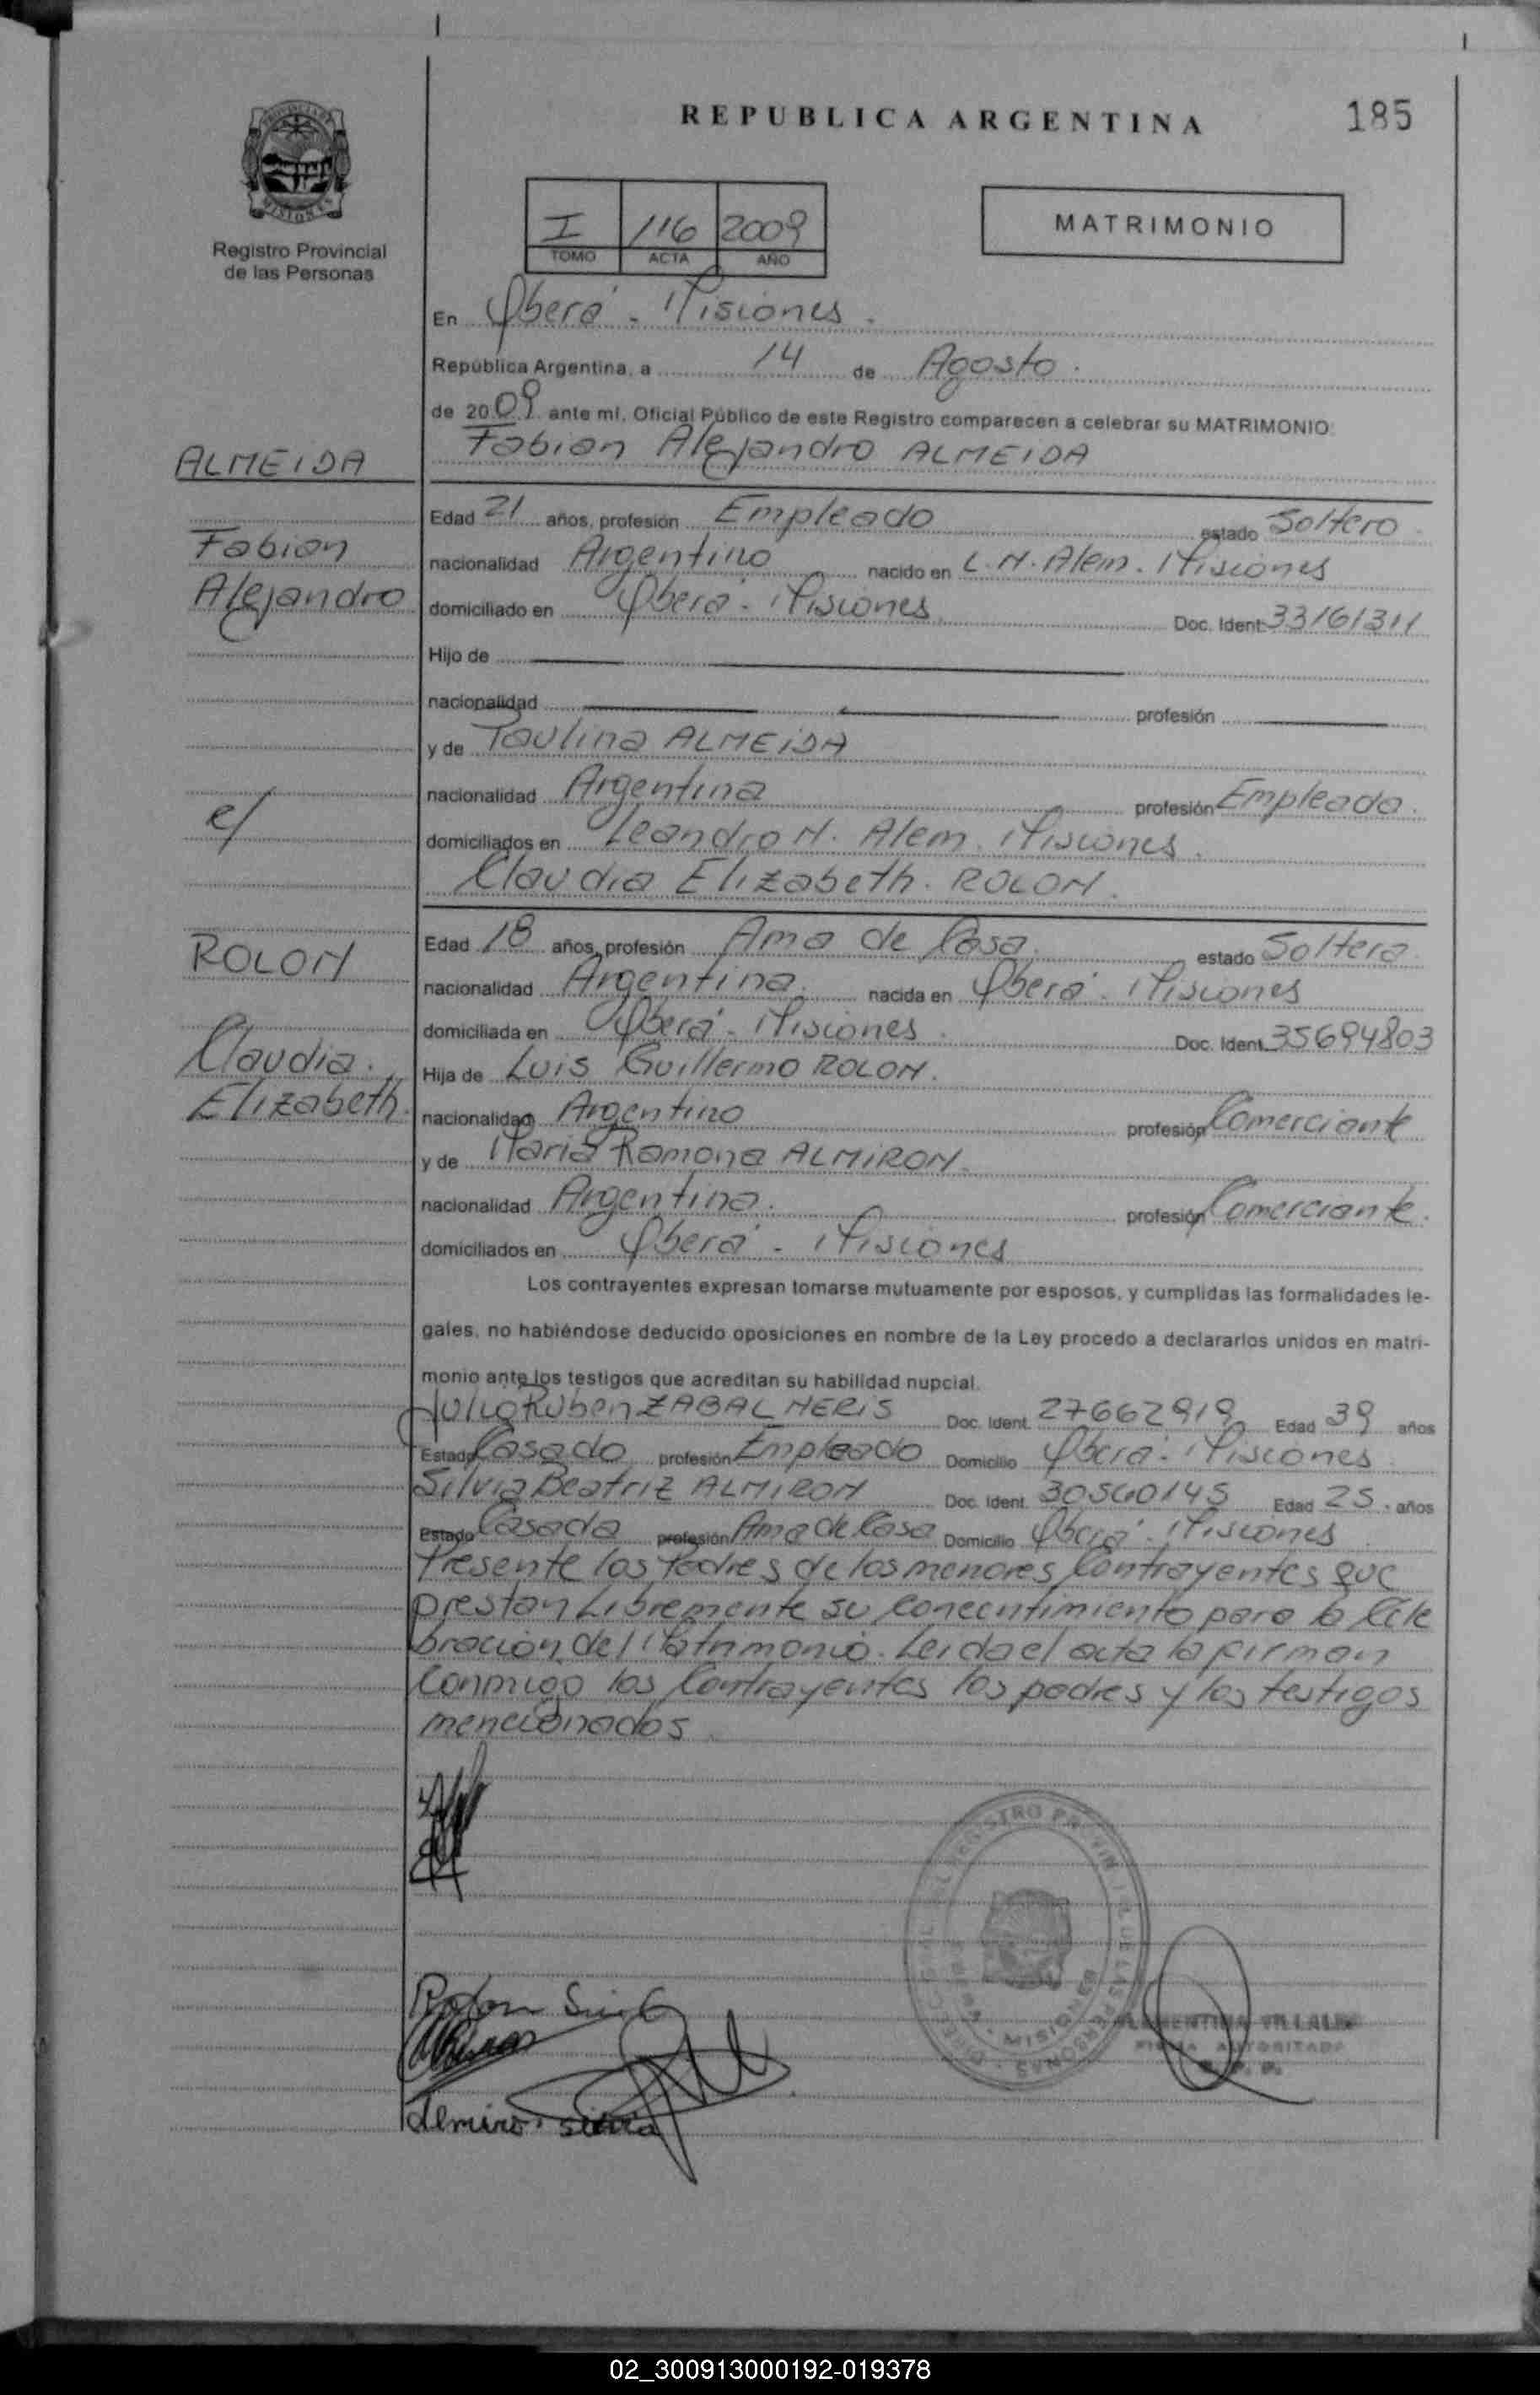 REPUBLICA ARGENTINA
185
PROVINCIA DE
MISIONES
Registro Provincial
de las Personas
I 116 2009
TOMO ACTA AÑO
MATRIMONIO
En Oberá - Misiones.
República Argentina, a 14 de Agosto.
de 2009 ante mí, Oficial Público de este Registro comparecen a celebrar su MATRIMONIO:
Fabian Alejandro ALMEIDA
ALMEIDA
Fabian
Alejandro
c/
ROLON
Claudia.
Elizabeth.
Edad 21 años, profesión Empleado estado Soltero.
nacionalidad Argentino nacido en L.N. Alem. Misiones
domiciliado en Oberá - Misiones Doc. Ident. 33161311
Hijo de
nacionalidad profesión
y de Paulina ALMEIDA
nacionalidad Argentina profesión Empleada.
domiciliados en Leandro N. Alem. Misiones.
Claudia Elizabeth. ROLON.
Edad 18 años, profesión Ama de Casa. estado Soltera.
nacionalidad Argentina. nacida en Oberá - Misiones
domiciliada en Oberá - Misiones. Doc. Ident. 35694803
Hija de Luis Guillermo ROLON.
nacionalidad Argentino profesión Comerciante
y de Maria Ramona ALMIRON.
nacionalidad Argentina. profesión Comerciante.
domiciliados en Oberá - Misiones
Los contrayentes expresan tomarse mutuamente por esposos, y cumplidas las formalidades le-
gales, no habiéndose deducido oposiciones en nombre de la Ley procedo a declararlos unidos en matri-
monio ante los testigos que acreditan su habilidad nupcial.
Julio Ruben ZABAL NERIS Doc. Ident. 27662919 Edad 39 años
Estado Casado profesión Empleado Domicilio Oberá - Misiones
Silvia Beatriz ALMIRON Doc. Ident. 30560145 Edad 25. años
Estado Casada profesión Ama de Casa Domicilio Oberá - Misiones
Presente los Padres de los menores Contrayentes que
prestan Libremente su concentimiento para la Cele
bración del Matrimonio. Leida el acta la firman
Conmigo los Contrayentes los padres y los testigos
mencionados.
Rolon
Almiron Silvia
CLEMENTINA VILLALBA
FIRMA AUTORIZADA
02_300913000192-019378